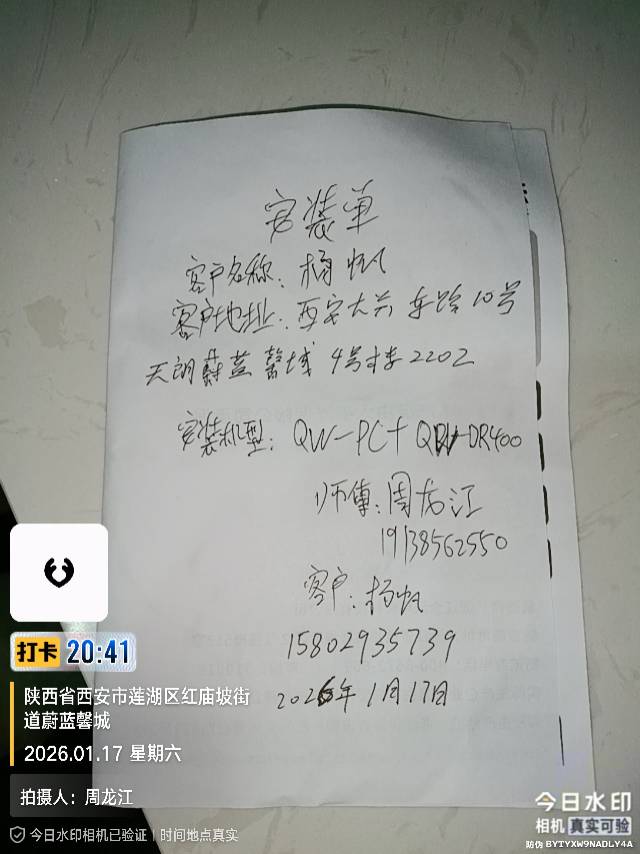 安装单
客户名称：杨帆
客户地址：西安大兴东路10号
天朗蔚蓝馨城 4号楼2202
安装机型：QW-PC+QW-DR400
师傅：周龙江
19138562550
客户：杨帆
15802935739
2026年1月17日
打卡 20:41
陕西省西安市莲湖区红庙坡街
道蔚蓝馨城
2026.01.17 星期六
拍摄人：周龙江
今日水印相机已验证 | 时间地点真实
今日水印
相机 真实可验
防伪 BYTYXW9NADLY4A